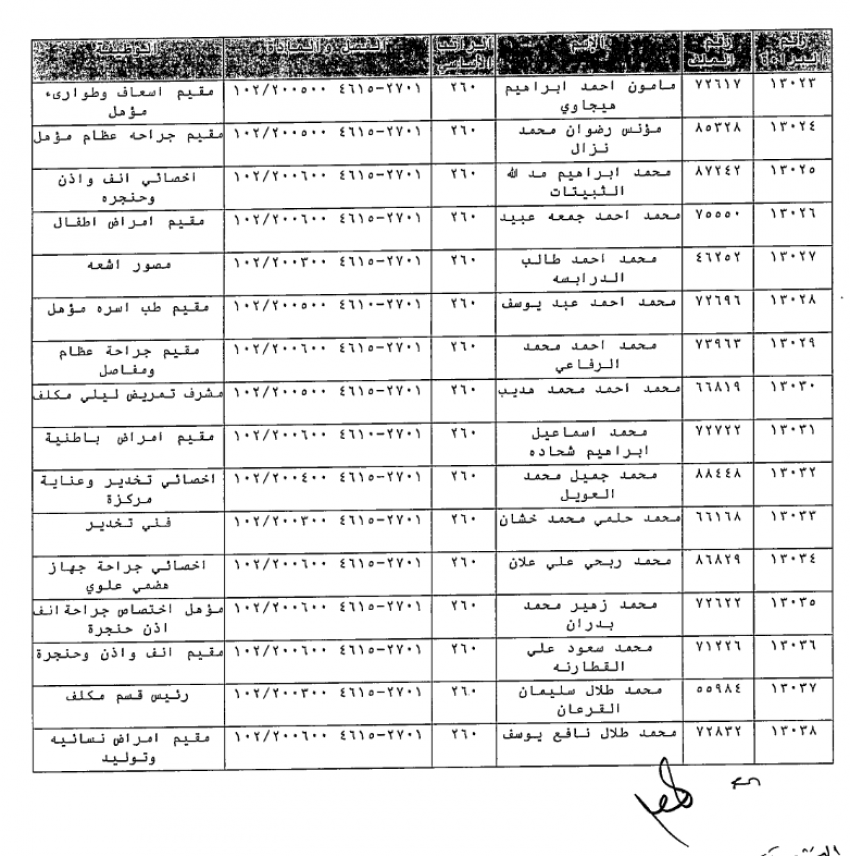 رقم البراءة | رقم الملف | الإسم | الراتب الأساسي | الفصل والمادة | الوظيفة
١٣٠٢٣ | ٧٢٦١٧ | مامون احمد ابراهيم هيجاوي | ٢٦٠ | ٢٧٠١-٤٦١٥ ١٠٢/٢٠٠٥٠٠ | مقيم اسعاف وطوارىء مؤهل
١٣٠٢٤ | ٨٥٣٢٨ | مؤنس رضوان محمد نزال | ٢٦٠ | ٢٧٠١-٤٦١٥ ١٠٢/٢٠٠٥٠٠ | مقيم جراحه عظام مؤهل
١٣٠٢٥ | ٨٧٢٤٢ | محمد ابراهيم مد الله الثبيتات | ٢٦٠ | ٢٧٠١-٤٦١٥ ١٠٢/٢٠٠٦٠٠ | اخصائي انف واذن وحنجره
١٣٠٢٦ | ٧٥٥٥٠ | محمد احمد جمعه عبيد | ٢٦٠ | ٢٧٠١-٤٦١٥ ١٠٢/٢٠٠٦٠٠ | مقيم امراض اطفال
١٣٠٢٧ | ٤٦٢٥٢ | محمد احمد طالب الدرابسه | ٢٦٠ | ٢٧٠١-٤٦١٥ ١٠٢/٢٠٠٣٠٠ | مصور اشعه
١٣٠٢٨ | ٧٢٦٩٦ | محمد احمد عبد يوسف | ٢٦٠ | ٢٧٠١-٤٦١٠ ١٠٢/٢٠٠٥٠٠ | مقيم طب اسره مؤهل
١٣٠٢٩ | ٧٣٩٦٣ | محمد احمد محمد الرفاعي | ٢٦٠ | ٢٧٠١-٤٦١٥ ١٠٢/٢٠٠٦٠٠ | مقيم جراحة عظام ومفاصل
١٣٠٣٠ | ٦٦٨١٩ | محمد احمد محمد هديب | ٢٦٠ | ٢٧٠١-٤٦١٥ ١٠٢/٢٠٠٥٠٠ | مشرف تمريض ليلي مكلف
١٣٠٣١ | ٧٢٧٢٢ | محمد اسماعيل ابراهيم شحاده | ٢٦٠ | ٢٧٠١-٤٦١٠ ١٠٢/٢٠٠٦٠٠ | مقيم امراض باطنية
١٣٠٣٢ | ٨٨٤٤٨ | محمد جميل محمد العويل | ٢٦٠ | ٢٧٠١-٤٦١٥ ١٠٢/٢٠٠٤٠٠ | اخصائي تخدير وعناية مركزة
١٣٠٣٣ | ٦٦١٦٨ | محمد حلمي محمد خشان | ٢٦٠ | ٢٧٠١-٤٦١٥ ١٠٢/٢٠٠٣٠٠ | فني تخدير
١٣٠٣٤ | ٨٦٨٢٩ | محمد ربحي علي علان | ٢٦٠ | ٢٧٠١-٤٦١٥ ١٠٢/٢٠٠٦٠٠ | اخصائي جراحة جهاز هضمي علوي
١٣٠٣٥ | ٧٢٦٢٢ | محمد زهير محمد بدران | ٢٦٠ | ٢٧٠١-٤٦١٥ ١٠٢/٢٠٠٦٠٠ | مؤهل اختصاص جراحة انف اذن حنجرة
١٣٠٣٦ | ٧١٢٢٦ | محمد سعود علي القطارنه | ٢٦٠ | ٢٧٠١-٤٦١٥ ١٠٢/٢٠٠٦٠٠ | مقيم انف واذن وحنجرة
١٣٠٣٧ | ٥٥٩٨٤ | محمد طلال سليمان القرعان | ٢٦٠ | ٢٧٠١-٤٦١٥ ١٠٢/٢٠٠٣٠٠ | رئيس قسم مكلف
١٣٠٣٨ | ٧٢٨٣٢ | محمد طلال نافع يوسف | ٢٦٠ | ٢٧٠١-٤٦١٥ ١٠٢/٢٠٠٦٠٠ | مقيم امراض نسائيه وتوليد